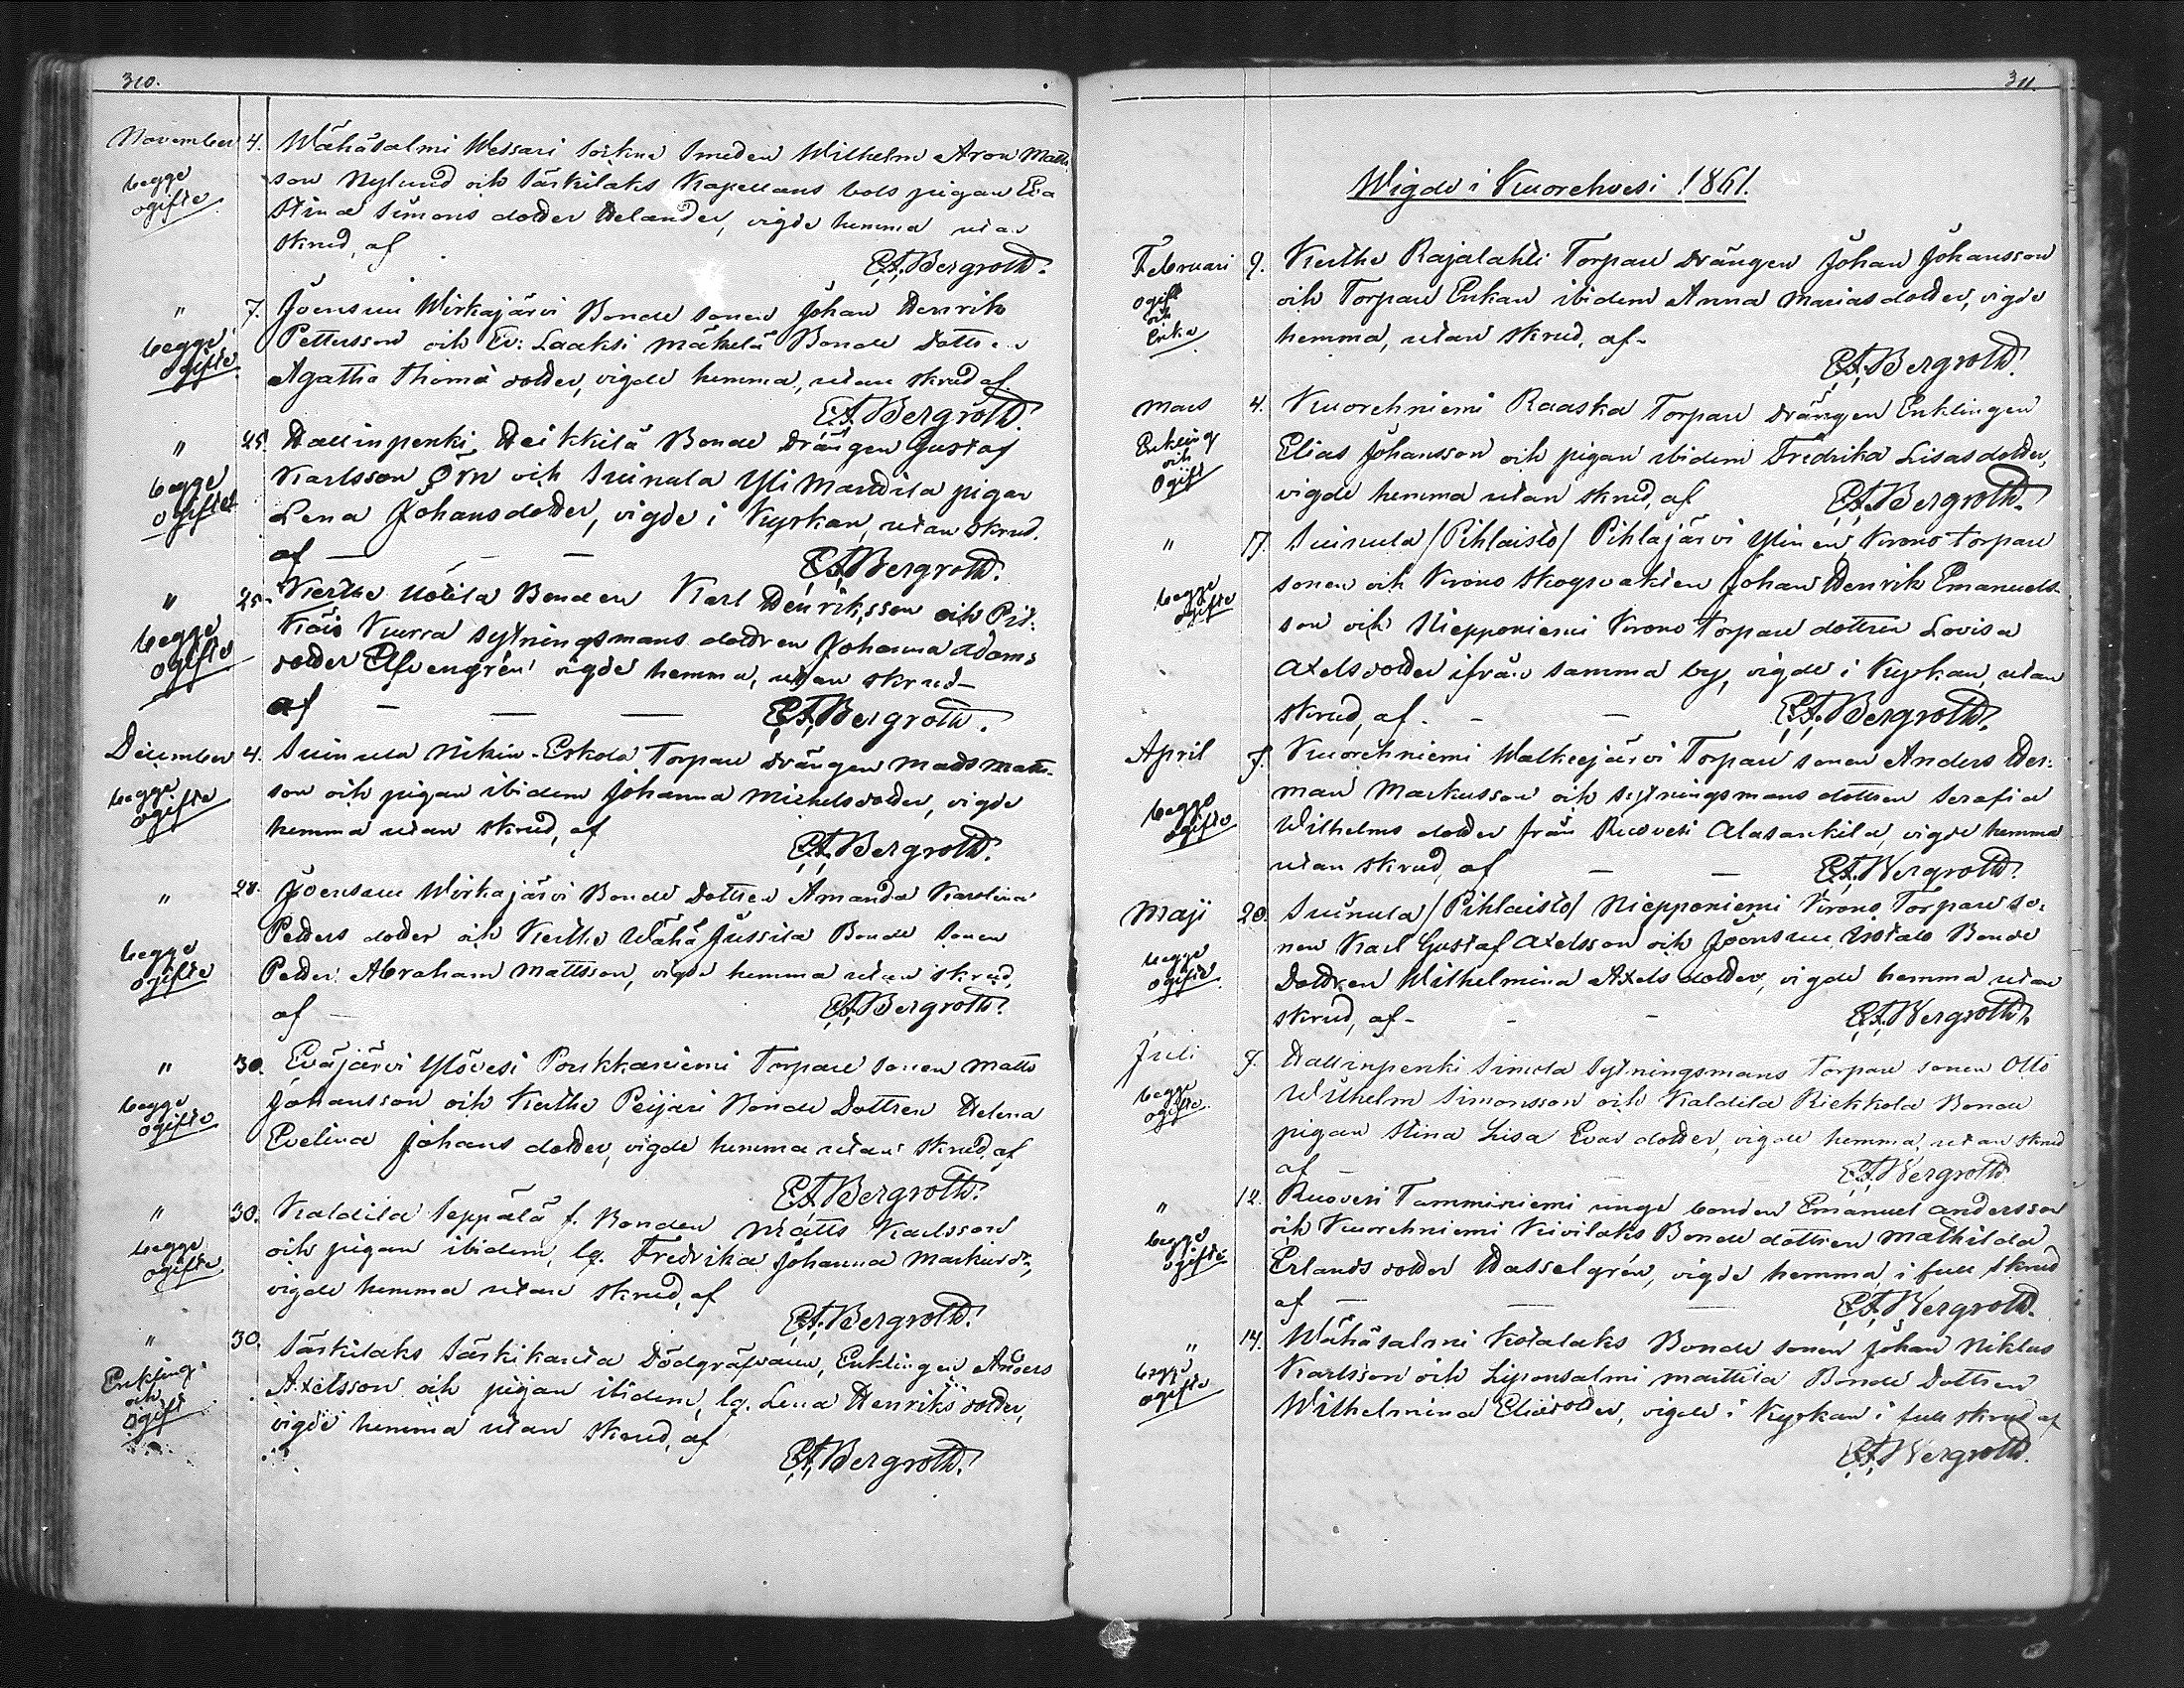 310.
November 4. Wähäsalmi Wessari Sockne Smeden Wilhelm Aron Matts
begge ogifte
son Nylund och Särkilaks Kapellans bols pigan Eva
Stina Simons dotter Helander, vigde hemma utan
skrud, af
E.A. Bergroth.
" 7. Joensuu Wirkajärvi Bonde sonen Johan Henrik
begge ogifte
Pettersson och Ev: Laaksi Mäkelä Bonde Dottren
Agatha Thomä dotter, vigde hemma, utan skrud af
E.A. Bergroth.
" 25. Hallinpenki Heikkilä Bonde Drängen Gustaf
begge ogifte
Karlsson Örn och Suinula Yli Marttila pigan
Lena Johans dotter, vigde i Kyrkan, utan skrud.
af — — —
E.A. Bergroth.
" 25. Kertte Uotila Bonden Karl Henriksson och Pit:
begge ogifte
käis Kurra sytningsmans dottren Johanna Adams
dotter Elfvengrén vigde hemma, utan skrud—
af — — —
E.A. Bergroth.
December 4. Suinula Nikin-Eskola Torpare Drängen Matts Matts-
begge ogifte
son och pigan ibidem Johanna Michelsdotter, vigde
hemma utan skrud, af
E.A. Bergroth.
" 28. Joensuu Wirkajärvi Bonde Dottren Amanda Karolina
begge ogifte
Petters dotter och Kertte Wähä Jussila Bonde sonen
Petter Abraham Mattsson, vigde hemma utan skrud,
af —
E.A. Bergroth.
" 30. Eväjärvi Ylövesi Poukkaniemi Torpare sonen Matts
begge ogifte
Johansson och Kertte Peijari Bonde Dottren Helena
Evelina Johans dotter, vigde hemma utan skrud, af
E.A. Bergroth.
" 30. Kaldila Seppälä f. Bonden Matts Karlsson
begge ogifte
och pigan ibidem, lg. Fredrika Johanna Markusdr,
vigde hemma utan skrud, af
E.A. Bergroth.
" 30. Särkilaks Särkikanta Dödgräfvaren, Enklingen Anders
Enkling och ogift
Axelsson och pigan ibidem, lg. Lena Henriks dotter,
vigde hemma utan skrud, af
E.A. Bergroth.
311.
Wigde i Kuorehvesi 1861.
Februari 9. Kertte Rajalahti Torpare Drängen Johan Johansson
ogift och Enka
och Torpare Enkan ibidem Anna Mariasdotter, vigde
hemma, utan skrud, af-
E.A. Bergroth.
Mars 4. Kuorehniemi Raaska Torpare Drängen Enklingen
Enkling och Ogift
Elias Johansson och pigan ibidem Fredrika Lisasdotter,
vigde hemma utan skrud, af
E.A. Bergroth.
" 17. Suinula /Pihlaisto/ Pihlajärvi Ylinen Krono torpare
begge ogifte
sonen och Krono Skogsvakten Johan Henrik Emanuels-
son och Niepponiemi Krono torpare dottren Lovisa
Axelsdotter ifrån samma by, vigde i Kyrkan, utan
skrud, af. - —
E.A. Bergroth.
April 7. Kuorehniemi Walkeejärvi Torpare sonen Anders Her-
begge ogifte
man Markusson och sytningsmans dottren Serafia
Wilhelms dotter från Ruovesi Alasankila, vigde hemma
utan skrud, af — —
E.A. Bergroth.
Maji 20. Suinula /Pihlaisto/ Niepponiemi Krono Torpare so-
begge ogifte
nen Karl Gustaf Axelsson och Joensuu Uotale Bonde
Dottren Wilhelmina Axels dotter, vigde hemma utan
skrud, af- - -
E.A. Bergroth.
Juli 7. Hallinpenki Simola Sytningsmans Torpare sonen Otto
begge ogifte
Wilhelm Simonsson och Kaldila Riekkola Bonde
pigan Stina Lisa Evas dotter, vigde hemma, utan skrud
af — — —
E.A. Bergroth
" 12. Ruovesi Tamminiemi unge bonden Emanuel Andersson
begge ogifte
och Kuorehniemi Kivilaks Bonde dottren Mathilda
Erlands dotter Hasselgrén, vigde hemma, i full skrud
af — — —
E.A. Bergroth.
" 14. Wähäsalmi Kotalaks Bonde sonen Johan Niklas
begge ogifte
Karlsson och Liponsalmi Marttila Bonde Dottren
Wilhelmina Eliädotter, vigde i Kyrkan i full skrud af
E.A. Bergroth.